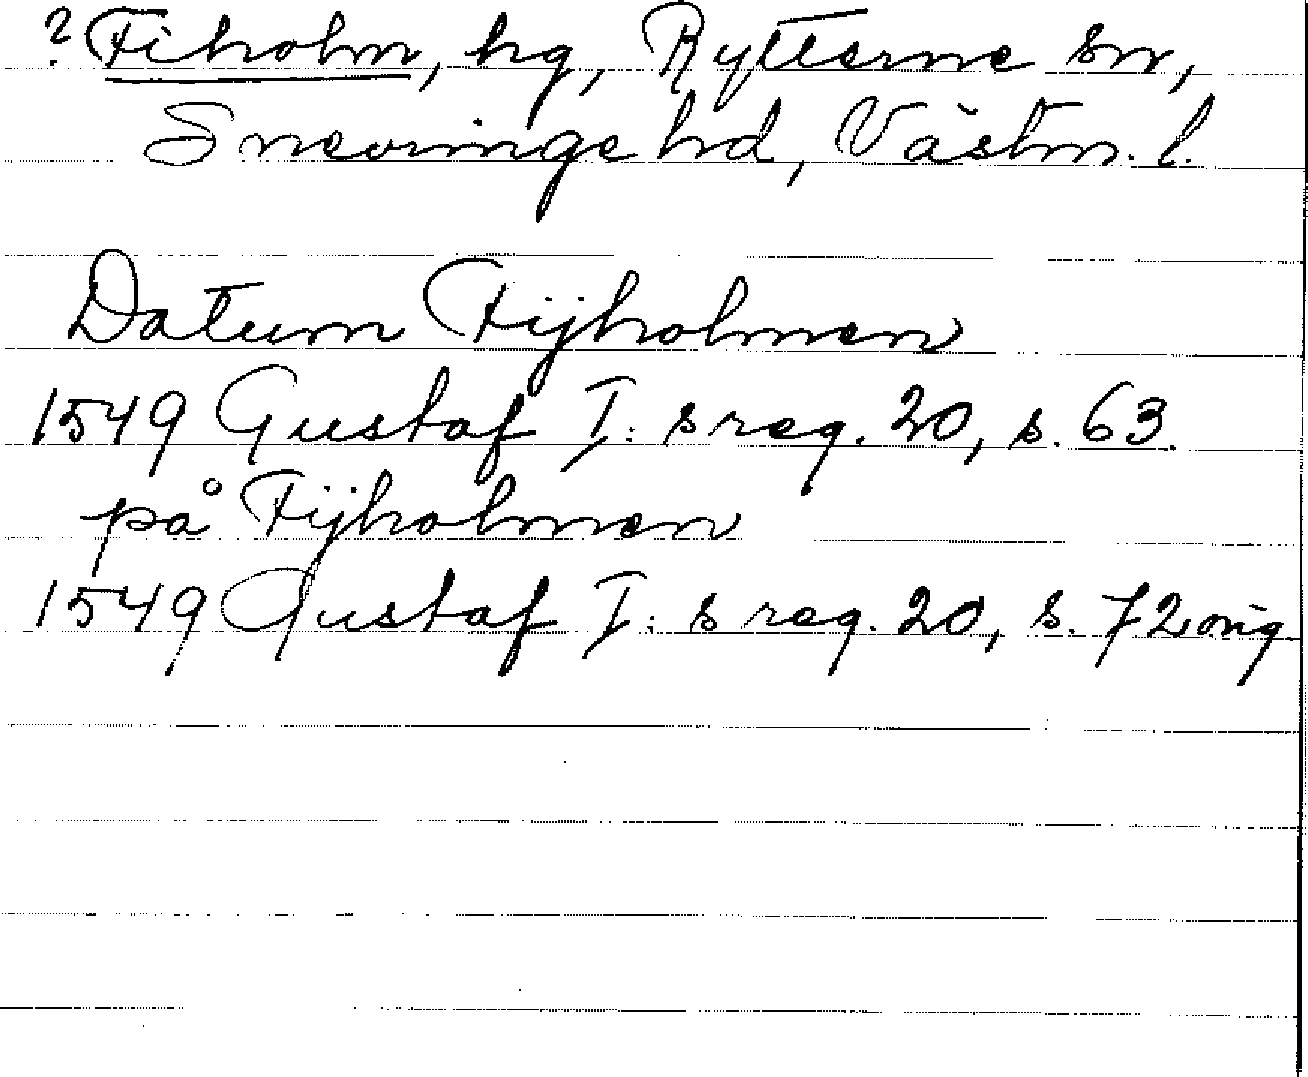 ? Fiholm, hg, Rytterne sn,
Snevringe hd, Västm. l.
Datum Fijholmen
1549 Gustaf I: s reg. 20, s. 63.
på Fijholmen
1549 Gustaf I: s reg. 20, s. 72